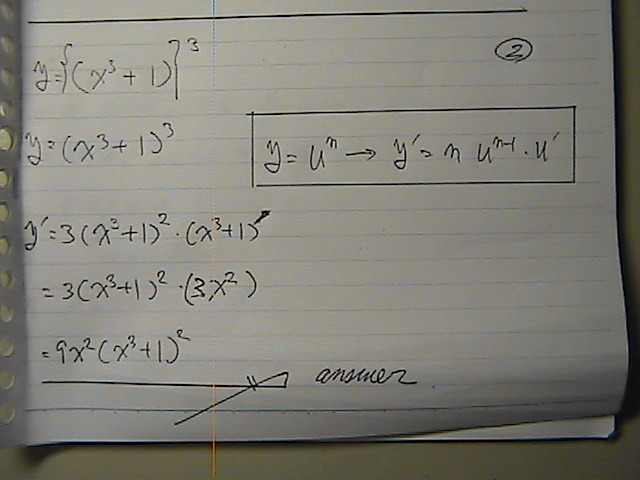 ②
y={(x³+1)}³
y=(x³+1)³
y=uⁿ → y'=n uⁿ⁻¹·u'
y'=3(x³+1)²·(x³+1)'
=3(x³+1)²·(3x²)
=9x²(x³+1)²
answer